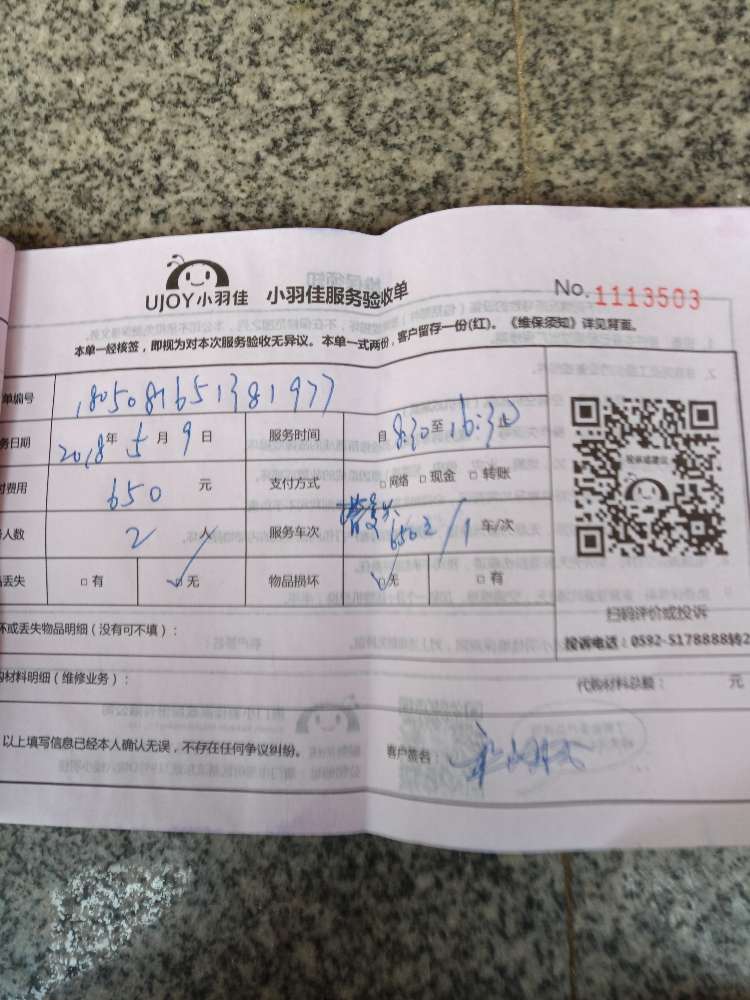 UJOY小羽佳 小羽佳服务验收单
No. 1113503
本单一经核签，即视为对本次服务验收无异议。本单一式两份，客户留存一份(红)。《维保须知》详见背面。
单编号 1805081651381977
务日期 2018年 5月 9日 服务时间 自 8:30 至 16:30 止
付费用 650 元 支付方式 □网络 □现金 □转账
人数 2 人 服务车次 650元 / 1 车/次
丢失 □有 □无 物品损坏 □无 □有
坏或丢失物品明细（没有可不填）：
扫码评价或投诉
投诉电话：0592-5178888转2
购材料明细（维修业务）： 代购材料总额： 元
以上填写信息已经本人确认无误，不存在任何争议纠纷。 客户签名：